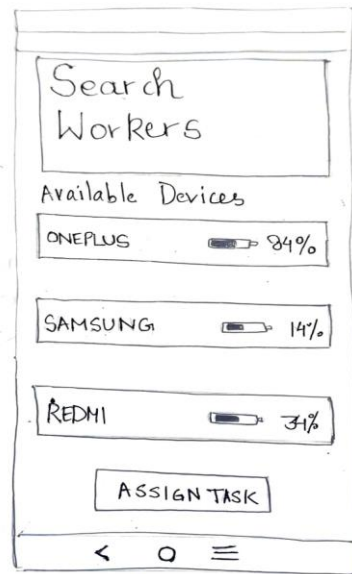 Search
Workers
Available Devices
ONEPLUS 84%
SAMSUNG 14%
REDMI 34%
ASSIGN TASK